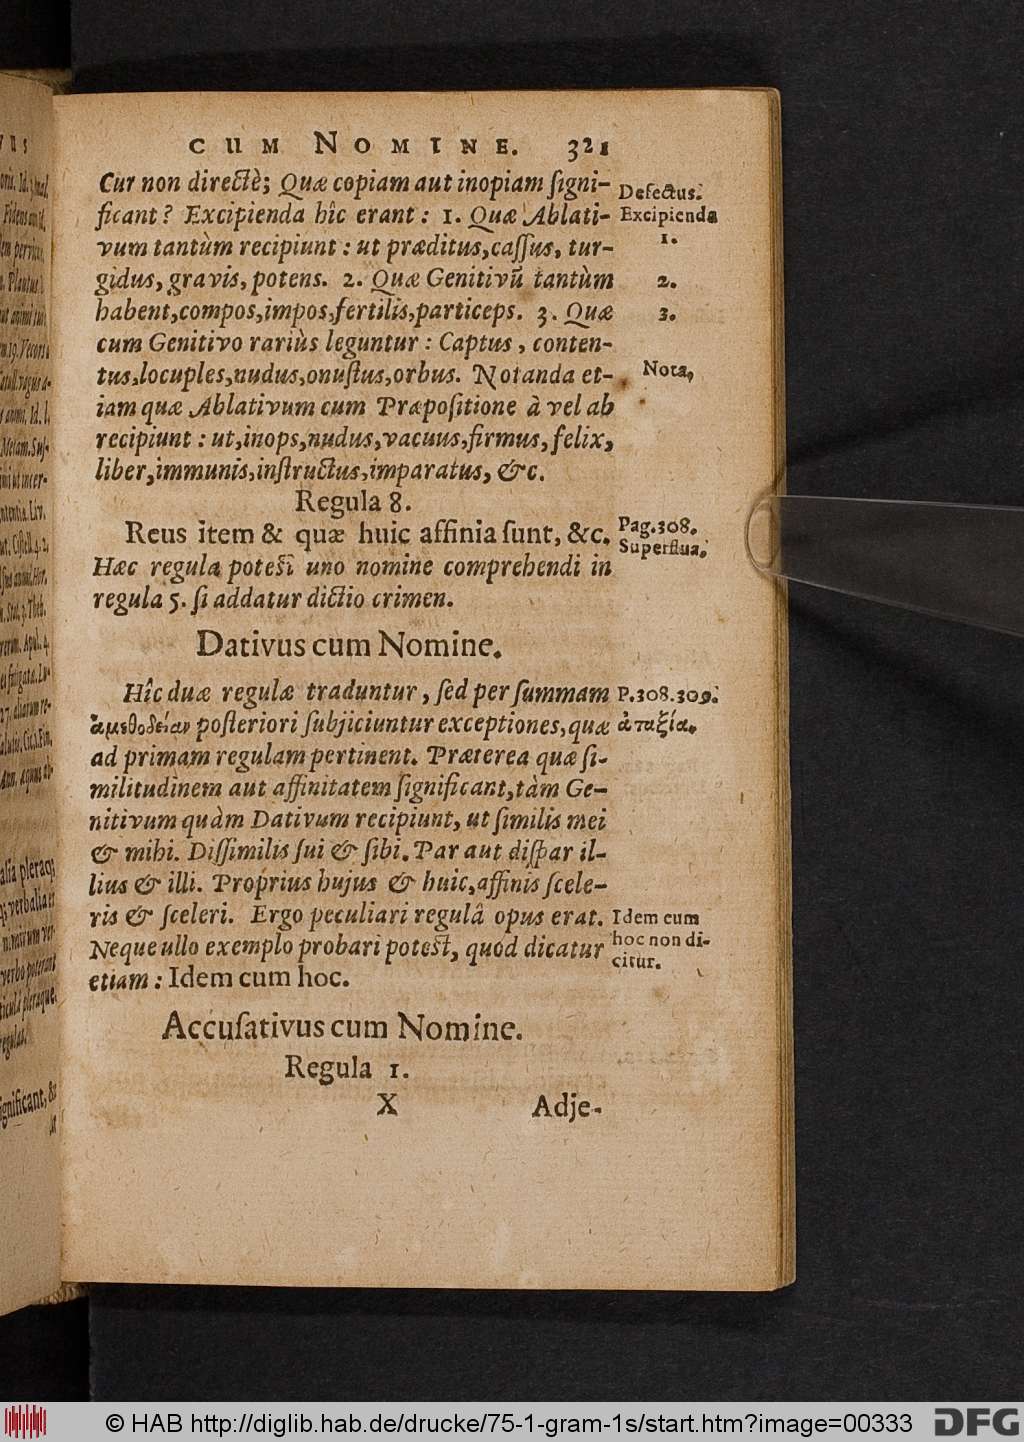 CUM NOMINE. 321
Cur non directè; Quæ copiam aut inopiam ſigni-
ficant? Excipienda hîc erant: 1. Quæ Ablati-
vum tantùm recipiunt: ut præditus, caſſus, tur-
gidus, gravis, potens. 2. Quæ Genitivũ tantùm
habent, compos, impos, fertilis, particeps. 3. Quæ
cum Genitivo rariùs leguntur: Captus, conten-
tus, locuples, nudus, onuſtus, orbus. Notanda et-
iam quæ Ablativum cum Præpoſitione à vel ab
recipiunt: ut, inops, nudus, vacuus, firmus, felix,
liber, immunis, inſtructus, imparatus, &c.
Defectus.
Excipienda
1.
2.
3.
Nota,
Regula 8.
Reus item & quæ huic affinia ſunt, &c.
Hæc regula poteſt uno nomine comprehendi in
regula 5. ſi addatur dictio crimen.
Pag. 308.
Superflua.
Dativus cum Nomine.
Hîc duæ regulæ traduntur, ſed per ſummam
ἀμεθοδείαν poſteriori ſubjiciuntur exceptiones, quæ
ad primam regulam pertinent. Præterea quæ ſi-
militudinem aut affinitatem ſignificant, tàm Ge-
nitivum quàm Dativum recipiunt, ut ſimilis mei
& mihi. Diſſimilis ſui & ſibi. Par aut diſpar il-
lius & illi. Proprius hujus & huic, affinis ſcele-
ris & ſceleri. Ergo peculiari regulâ opus erat.
Neque ullo exemplo probari poteſt, quod dicatur
etiam: Idem cum hoc.
P. 308. 309.
ἀταξία.
Idem cum
hoc non di-
citur.
Accuſativus cum Nomine.
Regula 1.
X Adje-
© HAB http://diglib.hab.de/drucke/75-1-gram-1s/start.htm?image=00333
DFG